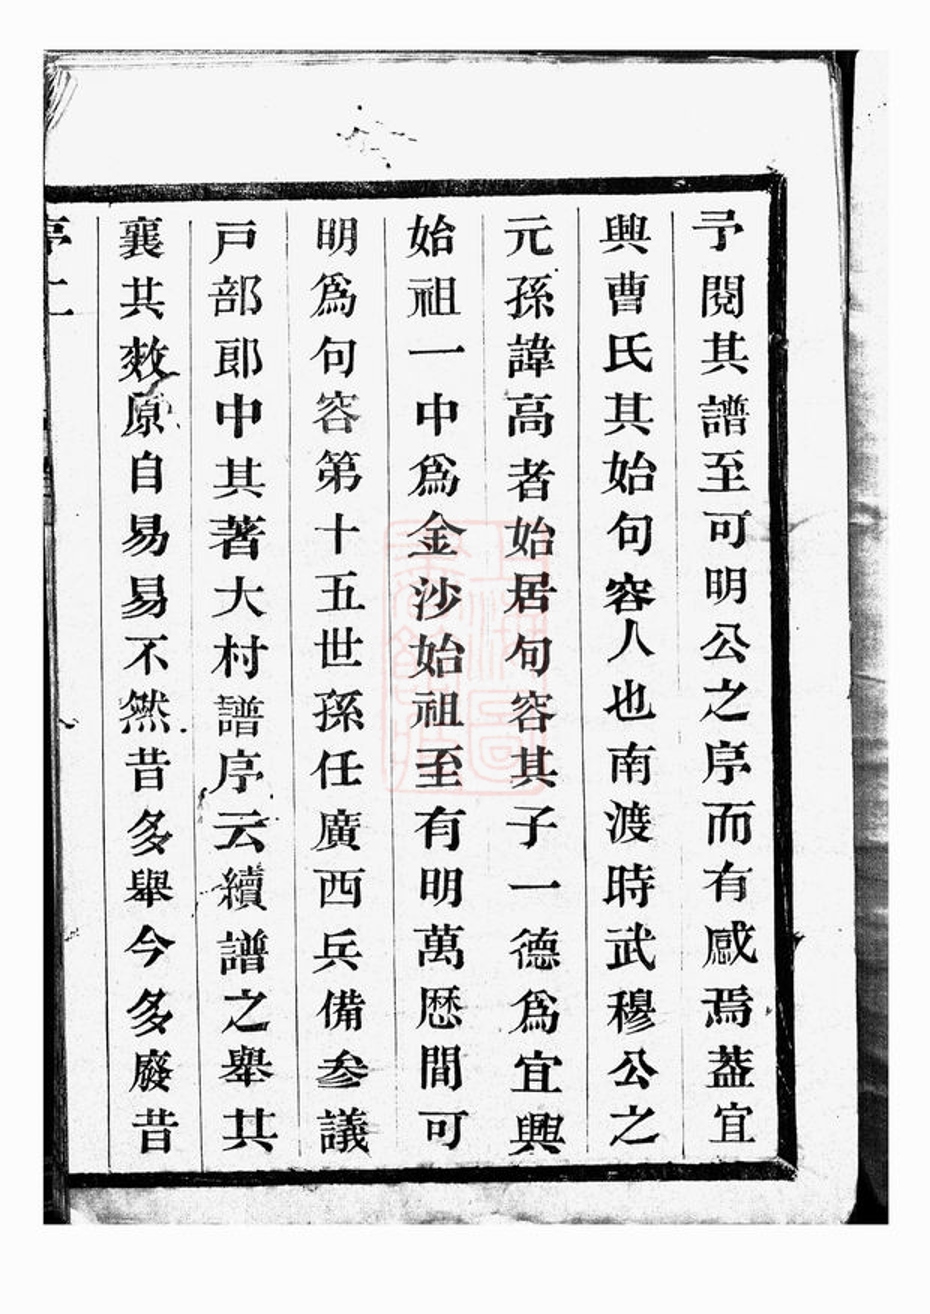 予閱其譜至可明公之序而有感焉葢宜
興曹氏其始句容人也南渡時武穆公之
元孫諱高者始居句容其子一德爲宜興
始祖一中爲金沙始祖至有明萬厯間可
明爲句容第十五世孫任廣西兵備参議
戸部郎中其著大村譜序云續譜之舉其
襄共效原自易易不然昔多舉今多廢昔
序二